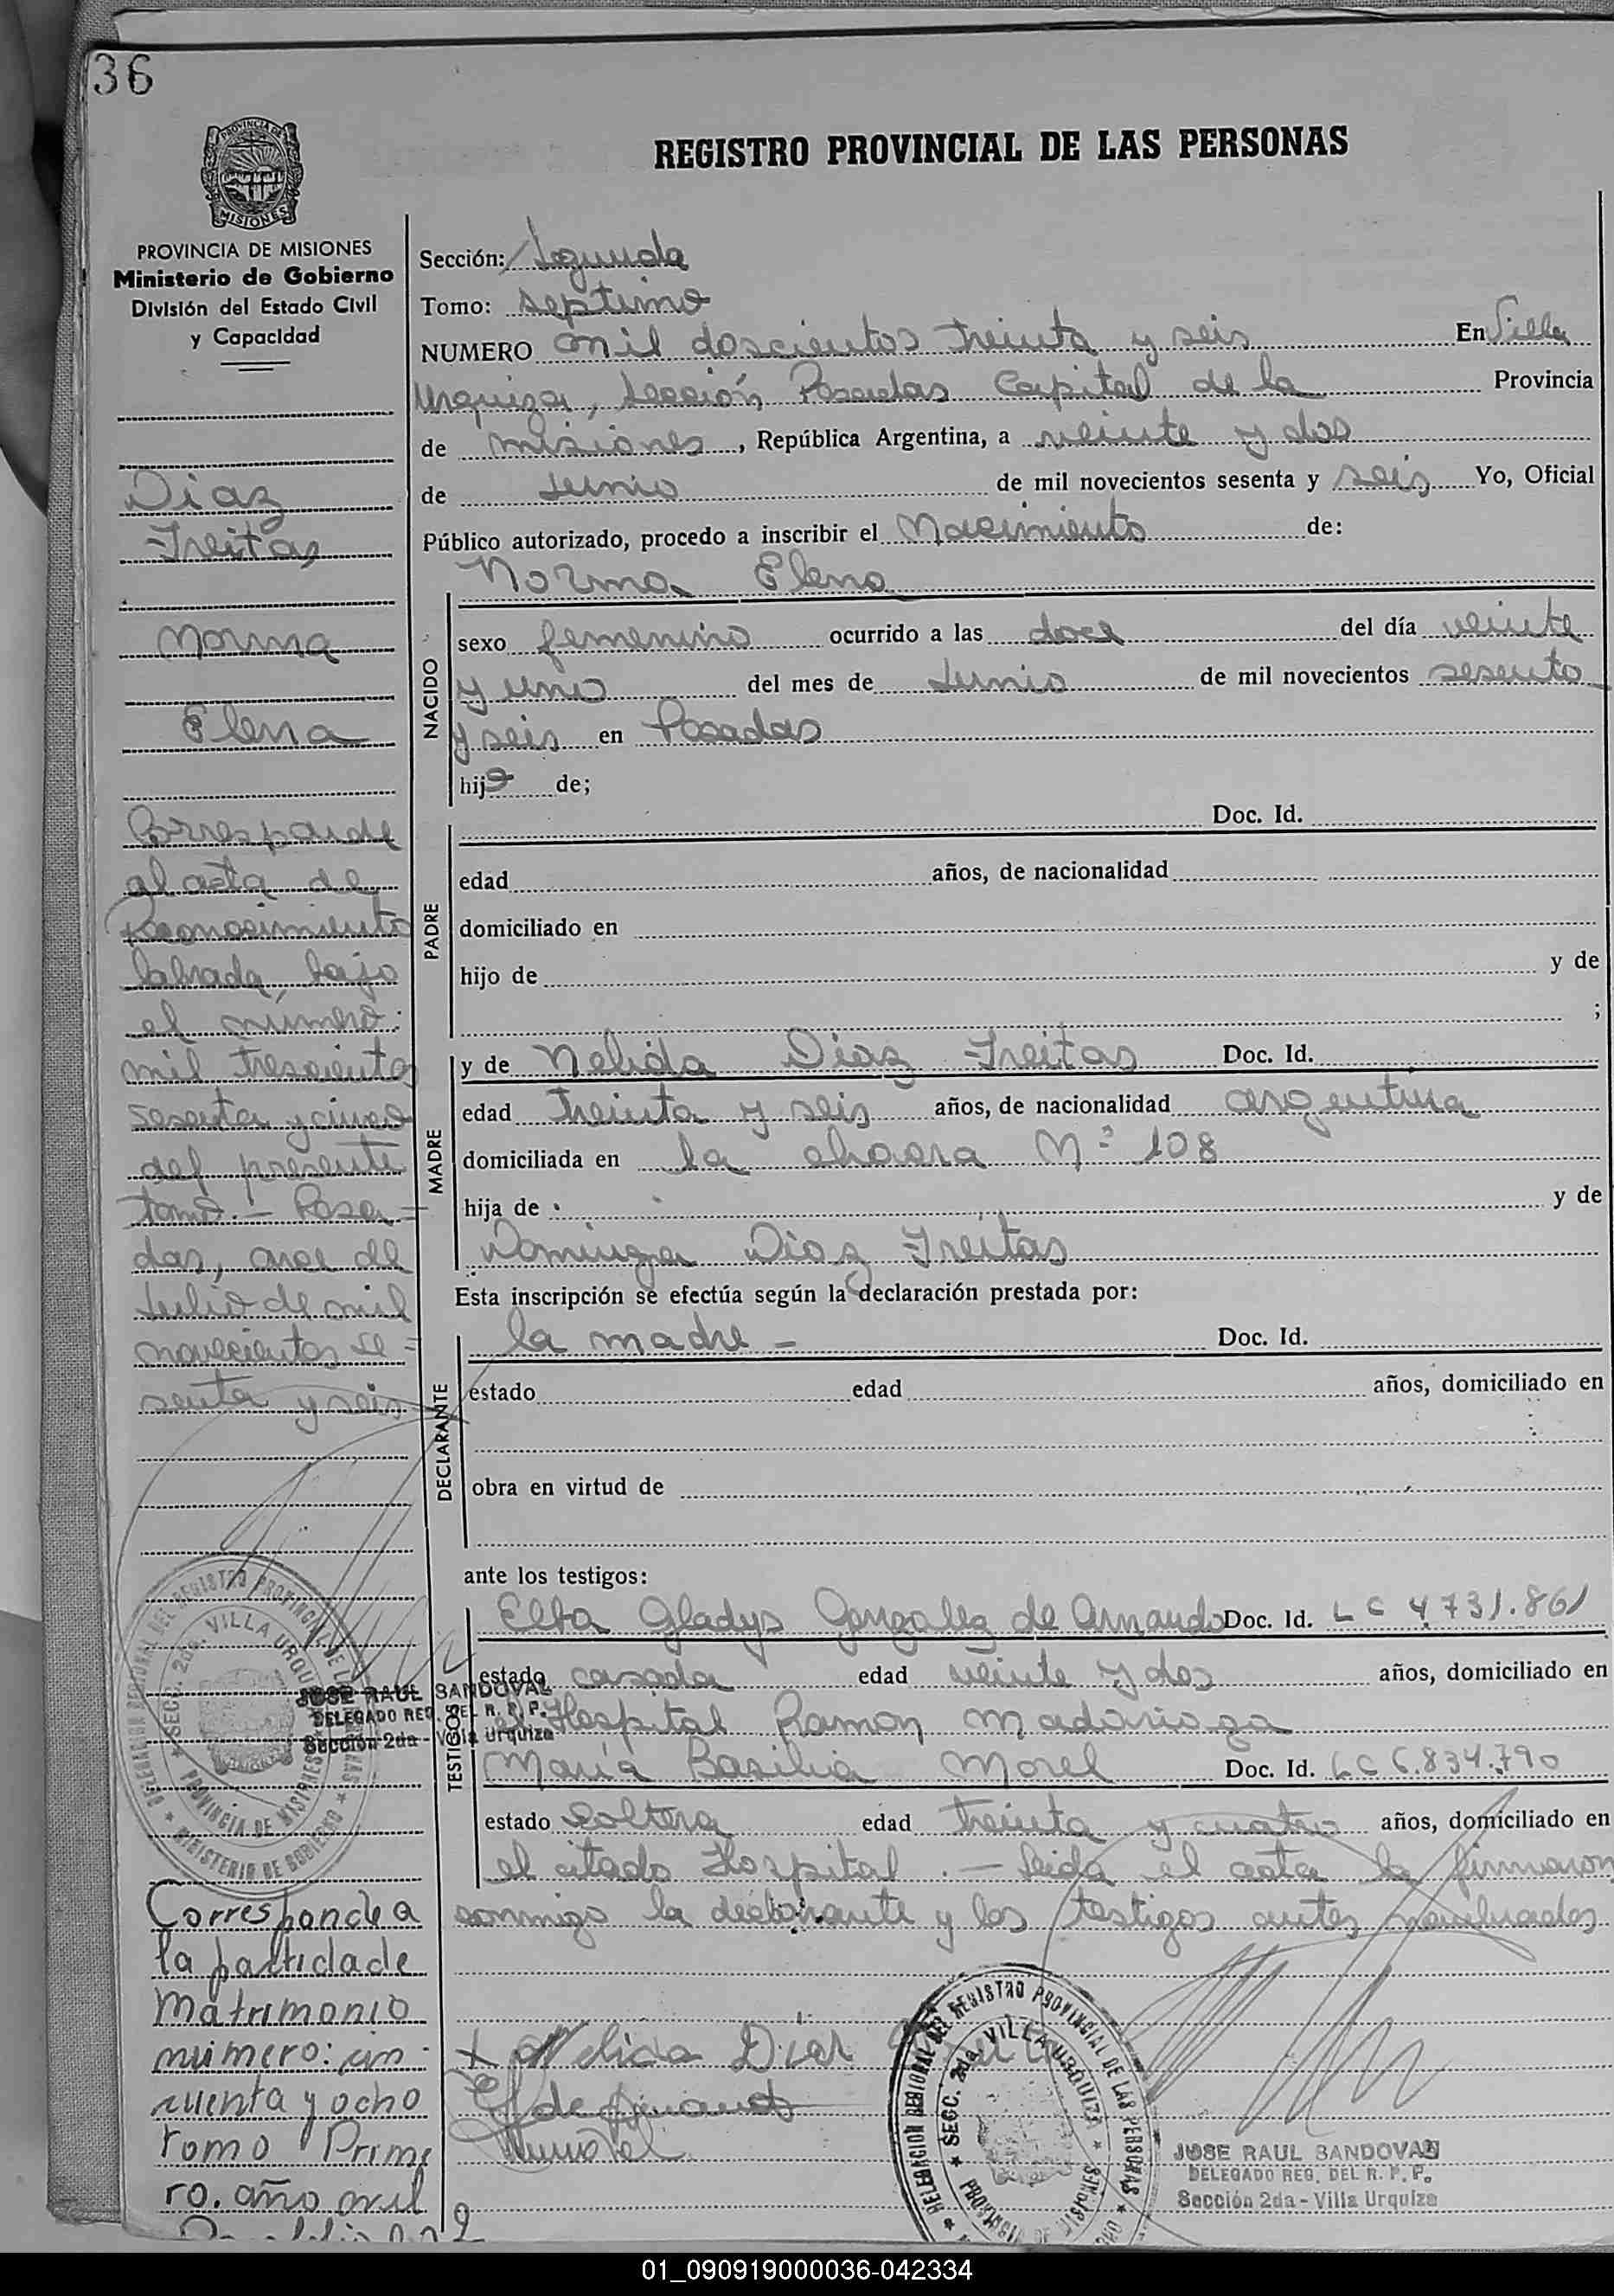 36
REGISTRO PROVINCIAL DE LAS PERSONAS
PROVINCIA DE MISIONES
MISIONES
PROVINCIA DE MISIONES
Ministerio de Gobierno
División del Estado Civil
y Capacidad
Diaz
Freitas
Norma
Elena
Corresponde
al acta de
Reconocimiento
labrada bajo
el número:
mil trescientos
sesenta y cinco
del presente
tomo.- Posa=
das, once de
Julio de mil
novecientos se=
senta y seis
DELEGACION REGIONAL DEL REGISTRO PROVINCIAL DE LAS PERSONAS
SECC. 2da. VILLA URQUIZA
PROVINCIA DE MISIONES
MINISTERIO DE GOBIERNO
JOSE RAUL SANDOVAL
DELEGADO REG. DEL R. P. P.
Sección 2da - Villa Urquiza
Corresponde a
la partida de
matrimonio
número: cin-
cuenta y ocho
Tomo Prime
ro. año mil
Sección: Segunda
Tomo: septimo
NUMERO mil doscientos treinta y seis En Villa
Urquiza, Sección Posadas Capital de la Provincia
de misiones, República Argentina, a veinte y dos
de Junio de mil novecientos sesenta y seis Yo, Oficial
Público autorizado, procedo a inscribir el Nacimiento de:
Norma Elena
NACIDO
sexo femenino ocurrido a las doce del día veinte
y uno del mes de Junio de mil novecientos sesenta
y seis en Posadas
hija de;
PADRE
Doc. Id.
edad años, de nacionalidad
domiciliado en
hijo de y de
;
MADRE
y de Nelida Diaz Freitas Doc. Id.
edad treinta y seis años, de nacionalidad argentina
domiciliada en la chacra Nº 108
hija de y de
Dominga Diaz Freitas
Esta inscripción se efectúa según la declaración prestada por:
DECLARANTE
la madre - Doc. Id.
estado edad años, domiciliado en
obra en virtud de
ante los testigos:
TESTIGOS
Elba Gladys Gonzalez de Armando Doc. Id. LC 4.731.861
estado casada edad veinte y dos años, domiciliado en
el Hospital Ramon Madariaga
María Basilia Morel Doc. Id. LC 6.834.790
estado soltera edad treinta y cuatro años, domiciliado en
el citado Hospital.- Leida el acta la firmaron
conmigo la declarante y los testigos antes nombrados
x Nelida Diaz
DELEGACION REGIONAL DEL REGISTRO PROVINCIAL DE LAS PERSONAS
SECC. 2da VILLA URQUIZA
JOSE RAUL SANDOVAL
DELEGADO REG. DEL R. P. P.
Sección 2da - Villa Urquiza
01_090919000036-042334